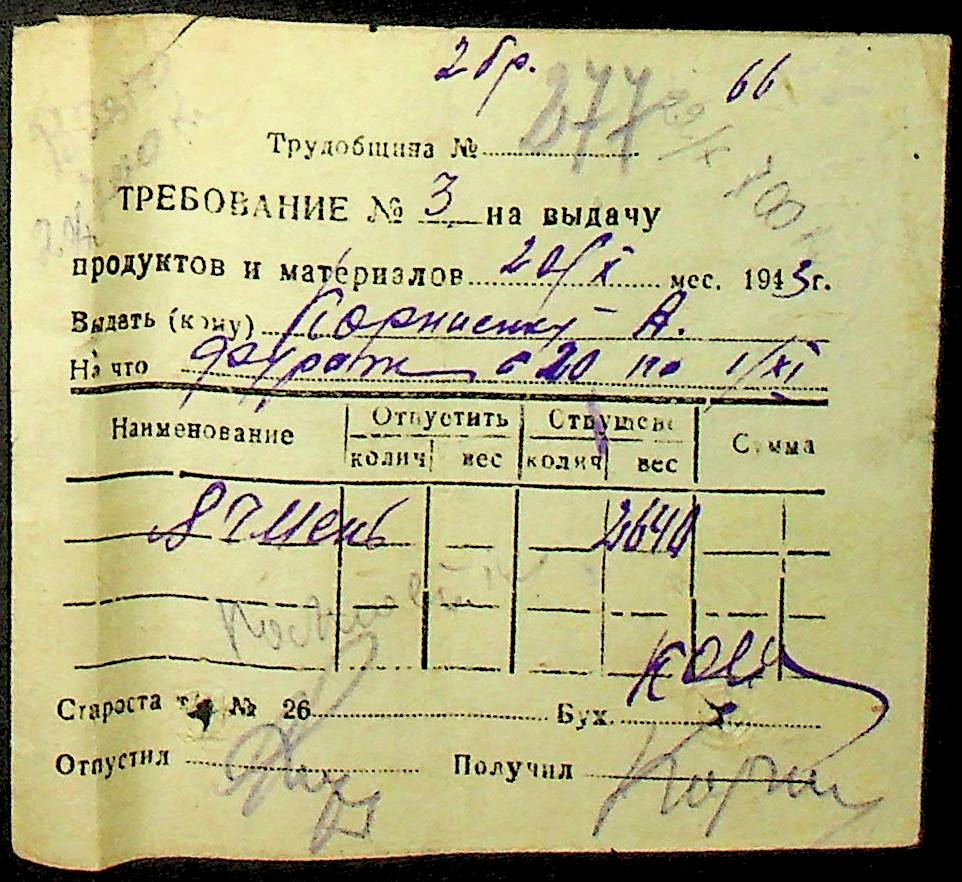 2 бр. 66
277
Трудобщина №
29/X 700
ТРЕБОВАНИЕ № 3 на выдачу
продуктов и материалов 20/X мес. 1943г.
Выдать (кому) Корниенку А.
На что фураж с 20 по 1/XI
Наименование Отпустить Отпущено Сумма
колич вес колич вес
Ячмень 2640
Староста т/о № 26 Бух.
Отпустил Получил Корни